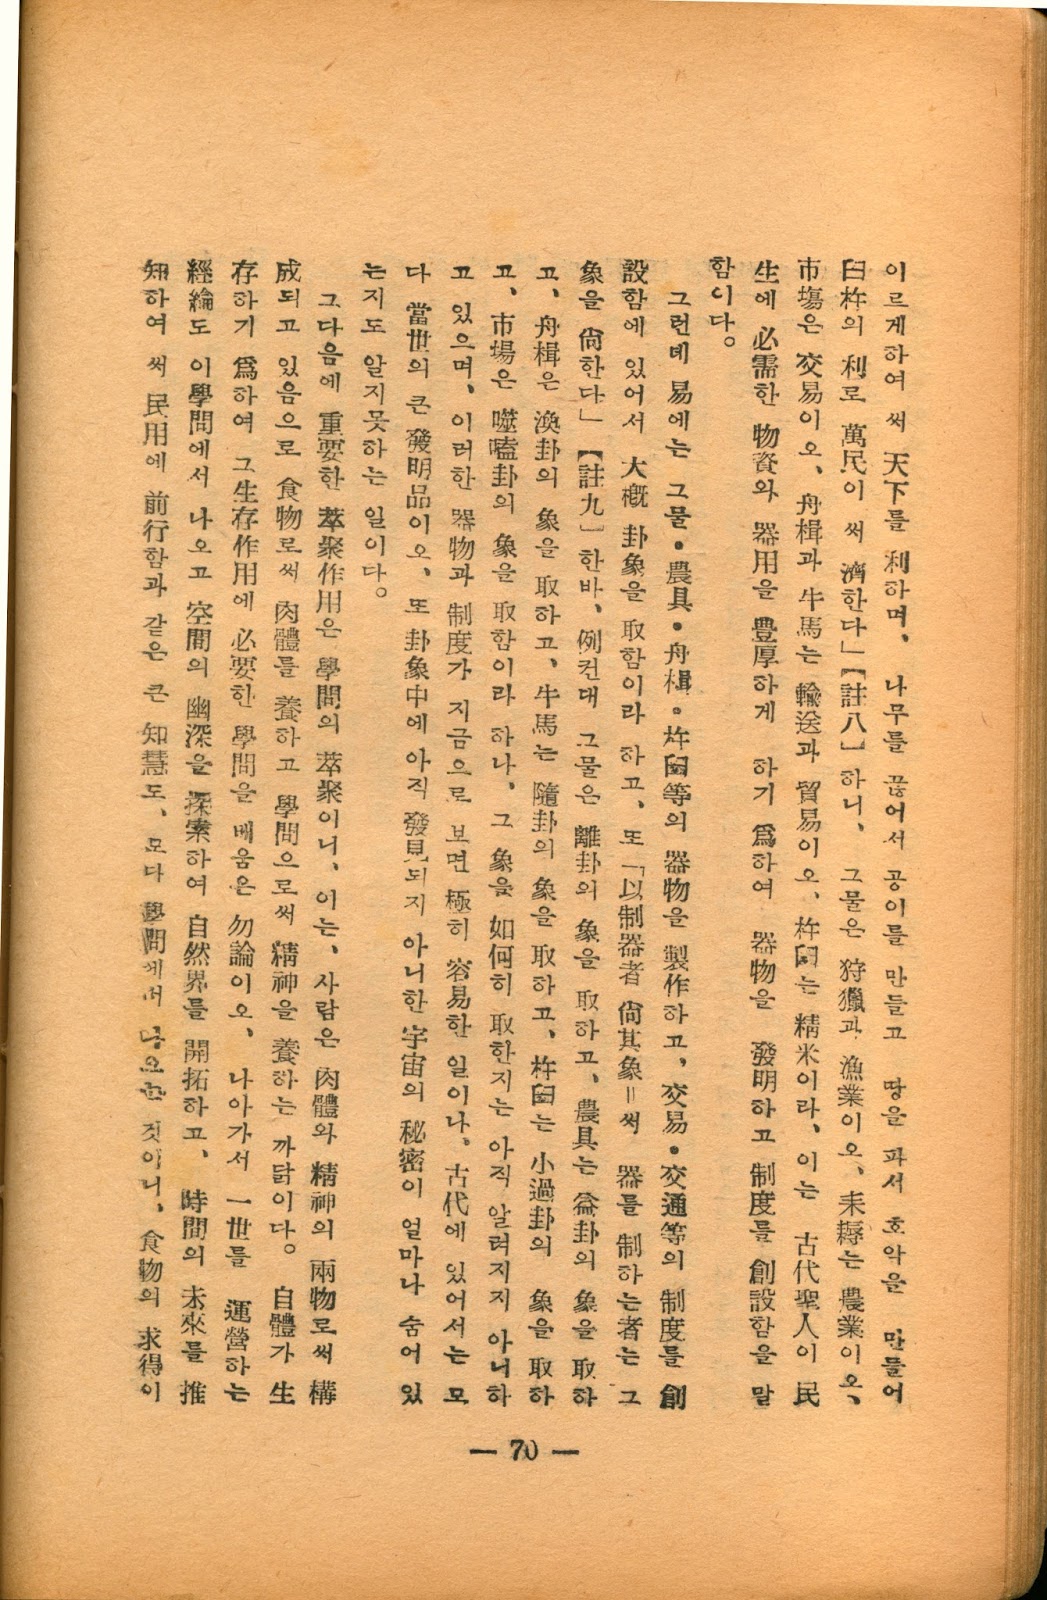 이르게하여 써 天下를 利하며、 나무를 끊어서 공이를 만들고 땅을 파서 호악을 만들어
臼杵의 利로 萬民이 써 濟한다」【註八】하니、 그물은 狩獵과 漁業이오、耒耨는 農業이오、
市場은 交易이오、舟楫과 牛馬는 輸送과 貿易이오、杵臼는 精米이라、이는 古代聖人이 民
生에 必需한 物資와 器用을 豊厚하게 하기 爲하여 器物을 發明하고 制度를 創設함을 말
함이다。
그런데 易에는 그물・農具・舟楫・杵臼等의 器物을 製作하고、交易・交通等의 制度를 創
設함에 있어서 大槪 卦象을 取함이라 하고、또「以制器者 尙其象＝써 器를 制하는者는 그
象을 尙한다」【註九】한바、例컨대 그물은 離卦의 象을 取하고、農具는 益卦의 象을 取하
고、舟楫은 渙卦의 象을 取하고、牛馬는 隨卦의 象을 取하고、杵臼는 小過卦의 象을 取하
고、市場은 噬嗑卦의 象을 取함이라 하나、그 象을 如何히 取한지는 아직 알려지지 아니하
고 있으며、이러한 器物과 制度가 지금으로 보면 極히 容易한 일이나、古代에 있어서는 모
다 當世의 큰 發明品이오、또 卦象中에 아직 發見되지 아니한 宇宙의 秘密이 얼마나 숨어 있
는지도 알지못하는 일이다。
그다음에 重要한 萃聚作用은 學問의 萃聚이니、이는、사람은 肉體와 精神의 兩物로써 構
成되고 있음으로 食物로써 肉體를 養하고 學問으로써 精神을 養하는 까닭이다。 自體가 生
存하기 爲하여 그生存作用에 必要한 學問을 배움은 勿論이오、 나아가서 一世를 運營하는
經綸도 이學問에서 나오고 空間의 幽深을 探索하여 自然界를 開拓하고、 時間의 未來를 推
知하여 써 民用에 前行함과 같은 큰 知慧도、모다 學問에서 나오는 것이니、食物의 求得이
— 70 —